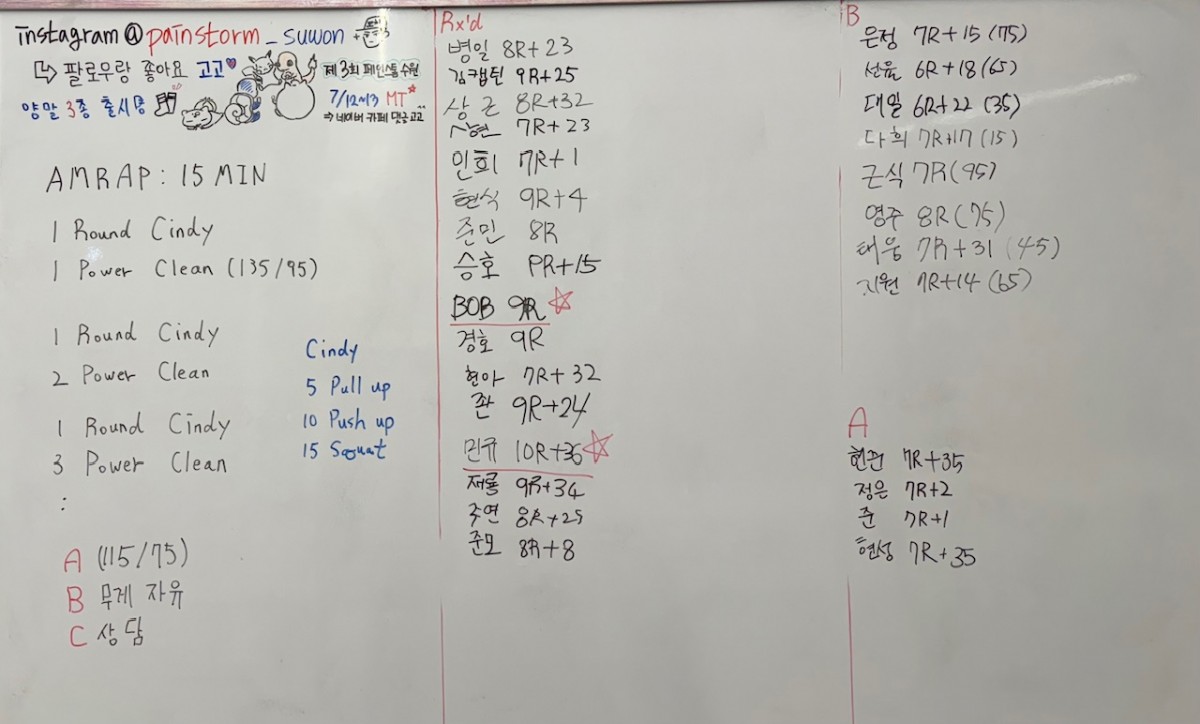 instagram@painstorm_suwon
팔로우랑 좋아요 고고
양말 3종 출시중
제 3회 페인스톰 수원
7/12~13 MT
⇒ 네이버 카페 댓글 고고
AMRAP : 15 MIN
1 Round Cindy
1 Power Clean (135/95)
1 Round Cindy
2 Power Clean
1 Round Cindy
3 Power Clean
:
Cindy
5 Pull up
10 Push up
15 Squat
A (115/75)
B 무게 자유
C 상담
Rx'd
병일 8R+23
김캡틴 9R+25
상근 8R+32
상현 7R+23
인회 7R+1
현식 9R+4
준민 8R
승호 PR+15
BOB 9R
경호 9R
현아 7R+32
좐 9R+24
민규 10R+36
재룡 9R+34
주연 8R+25
준모 8R+8
B
은정 7R+15 (75)
선율 6R+18 (65)
대일 6R+22 (35)
다희 7R+17 (15)
근식 7R (95)
영주 8R (75)
태웅 7R+31 (45)
지원 7R+14 (65)
A
현관 7R+35
정은 7R+2
준 7R+1
현성 7R+35